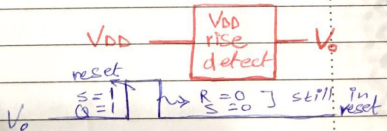 VDD VDD rise detect Vo
reset
S=1 R=0 ] still in
Q=1 S=0 reset
Vo